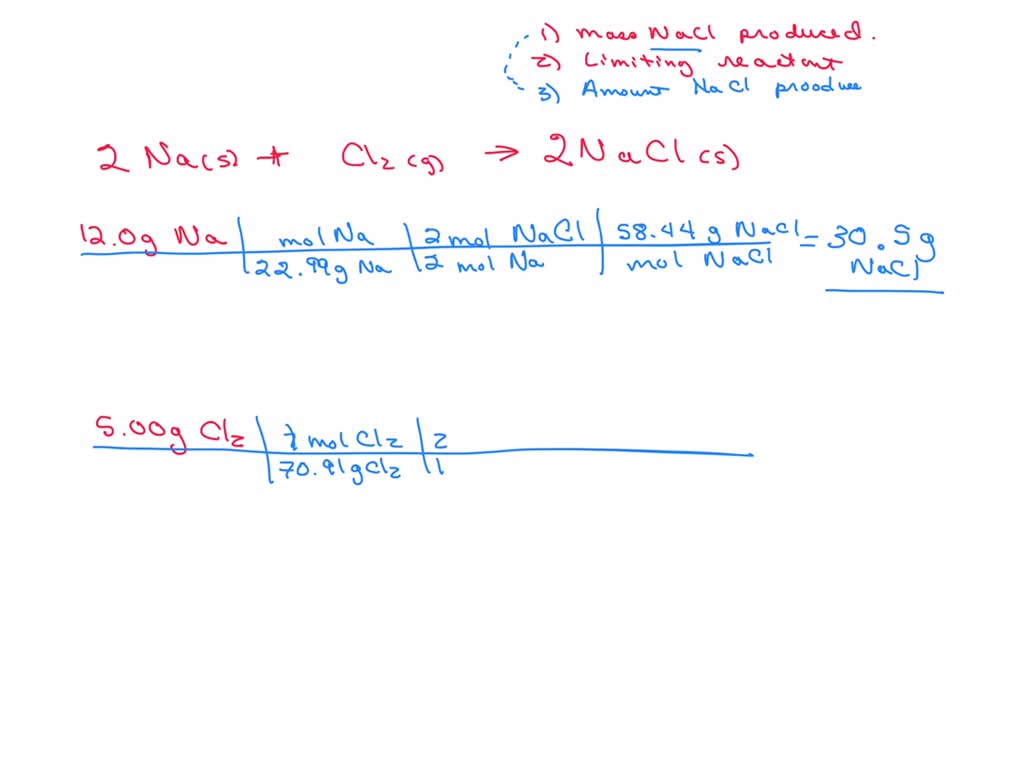 1) mass NaCl produced.
2) Limiting reactant
3) Amount NaCl proodue
2 Na(s) + Cl₂(g) → 2NaCl(s)
12.0g Na | mol Na | 2 mol NaCl | 58.44 g NaCl = 30.5g
22.99g Na | 2 mol Na | mol NaCl NaCl
5.00g Cl₂ | 1 mol Cl₂ | 2
70.91g Cl₂ | 1